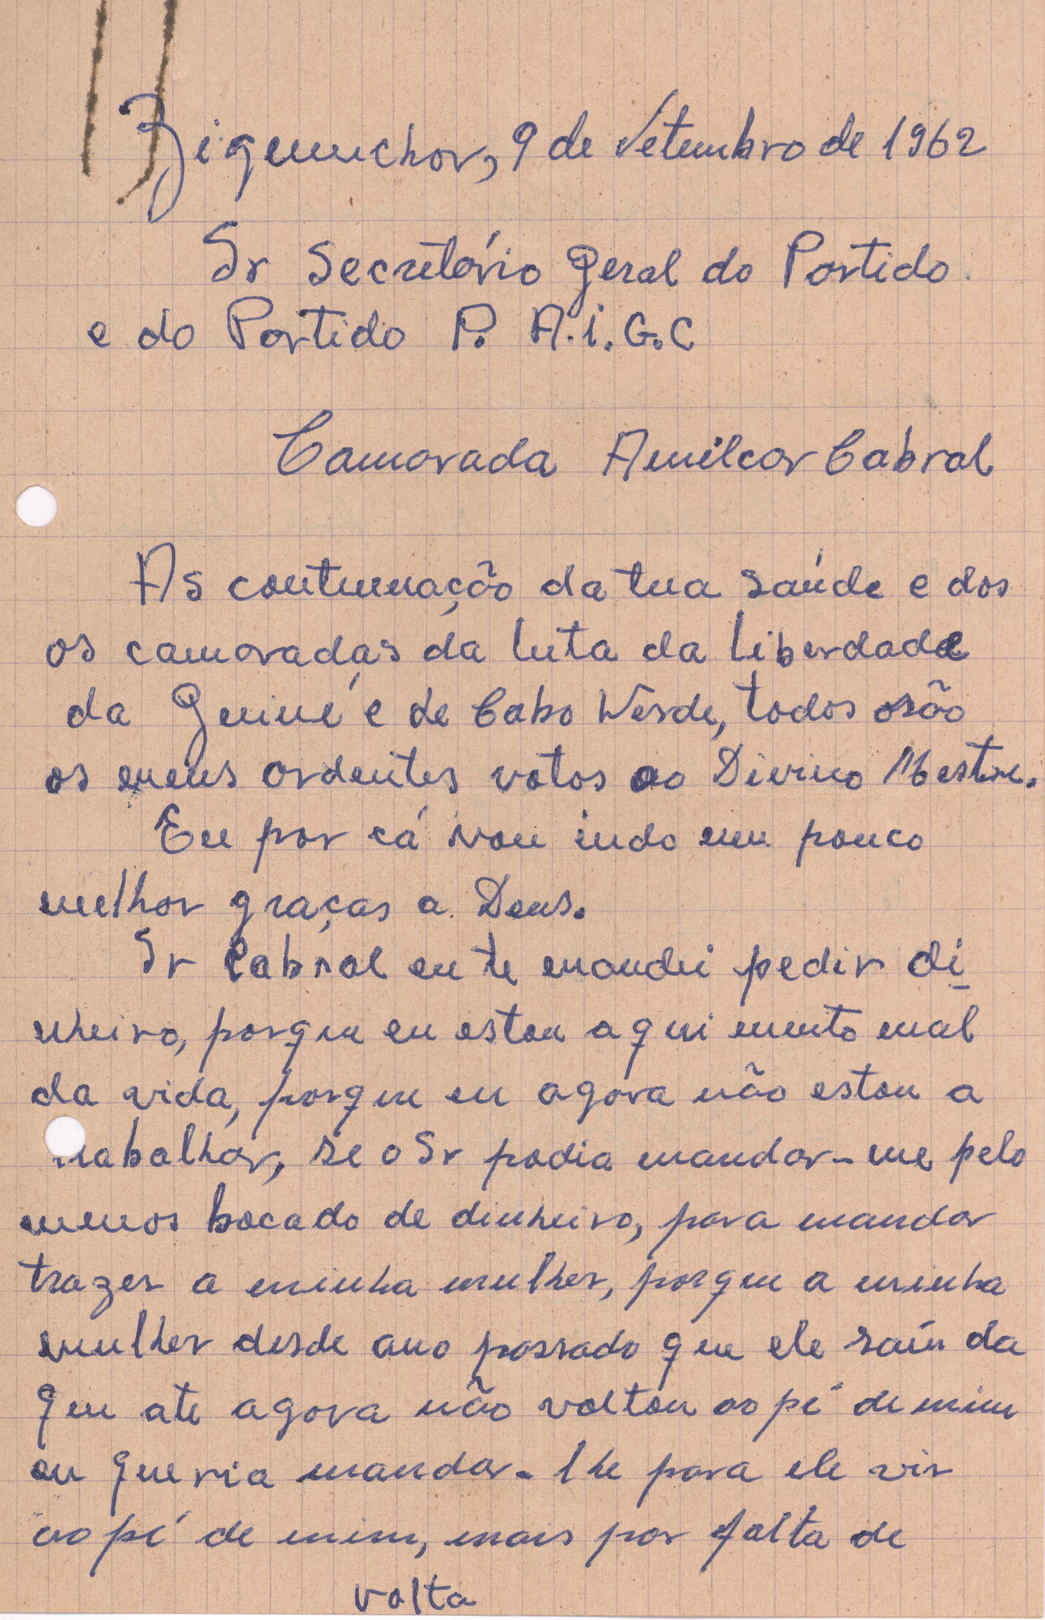 Zigumchor, 9 de Setembro de 1962
Sr Secretário Geral do Partido
e do Partido P. A.I.G.C
Camarada Amilcar Cabral
As continuação da tua saúde e dos
os camaradas da luta da liberdade
da Guiné e de Cabo Verde, todos são
os meus ardentes votos ao Divino Mestre.
Eu por cá vou indo um pouco
melhor graças a Deus.
Sr Cabral eu te mandei pedir di
nheiro, porque eu estou aqui muito mal
da vida, porque eu agora não estou a
trabalhar, se o Sr podia mandar-me pelo
menos bocado de dinheiro, para mandar
trazer a minha mulher, porque a minha
mulher desde ano passado que ele saiu da
que ate agora não voltou ao pé de mim
eu queria mandar-lhe para ele vir
ao pé de mim, mais por falta de
volta